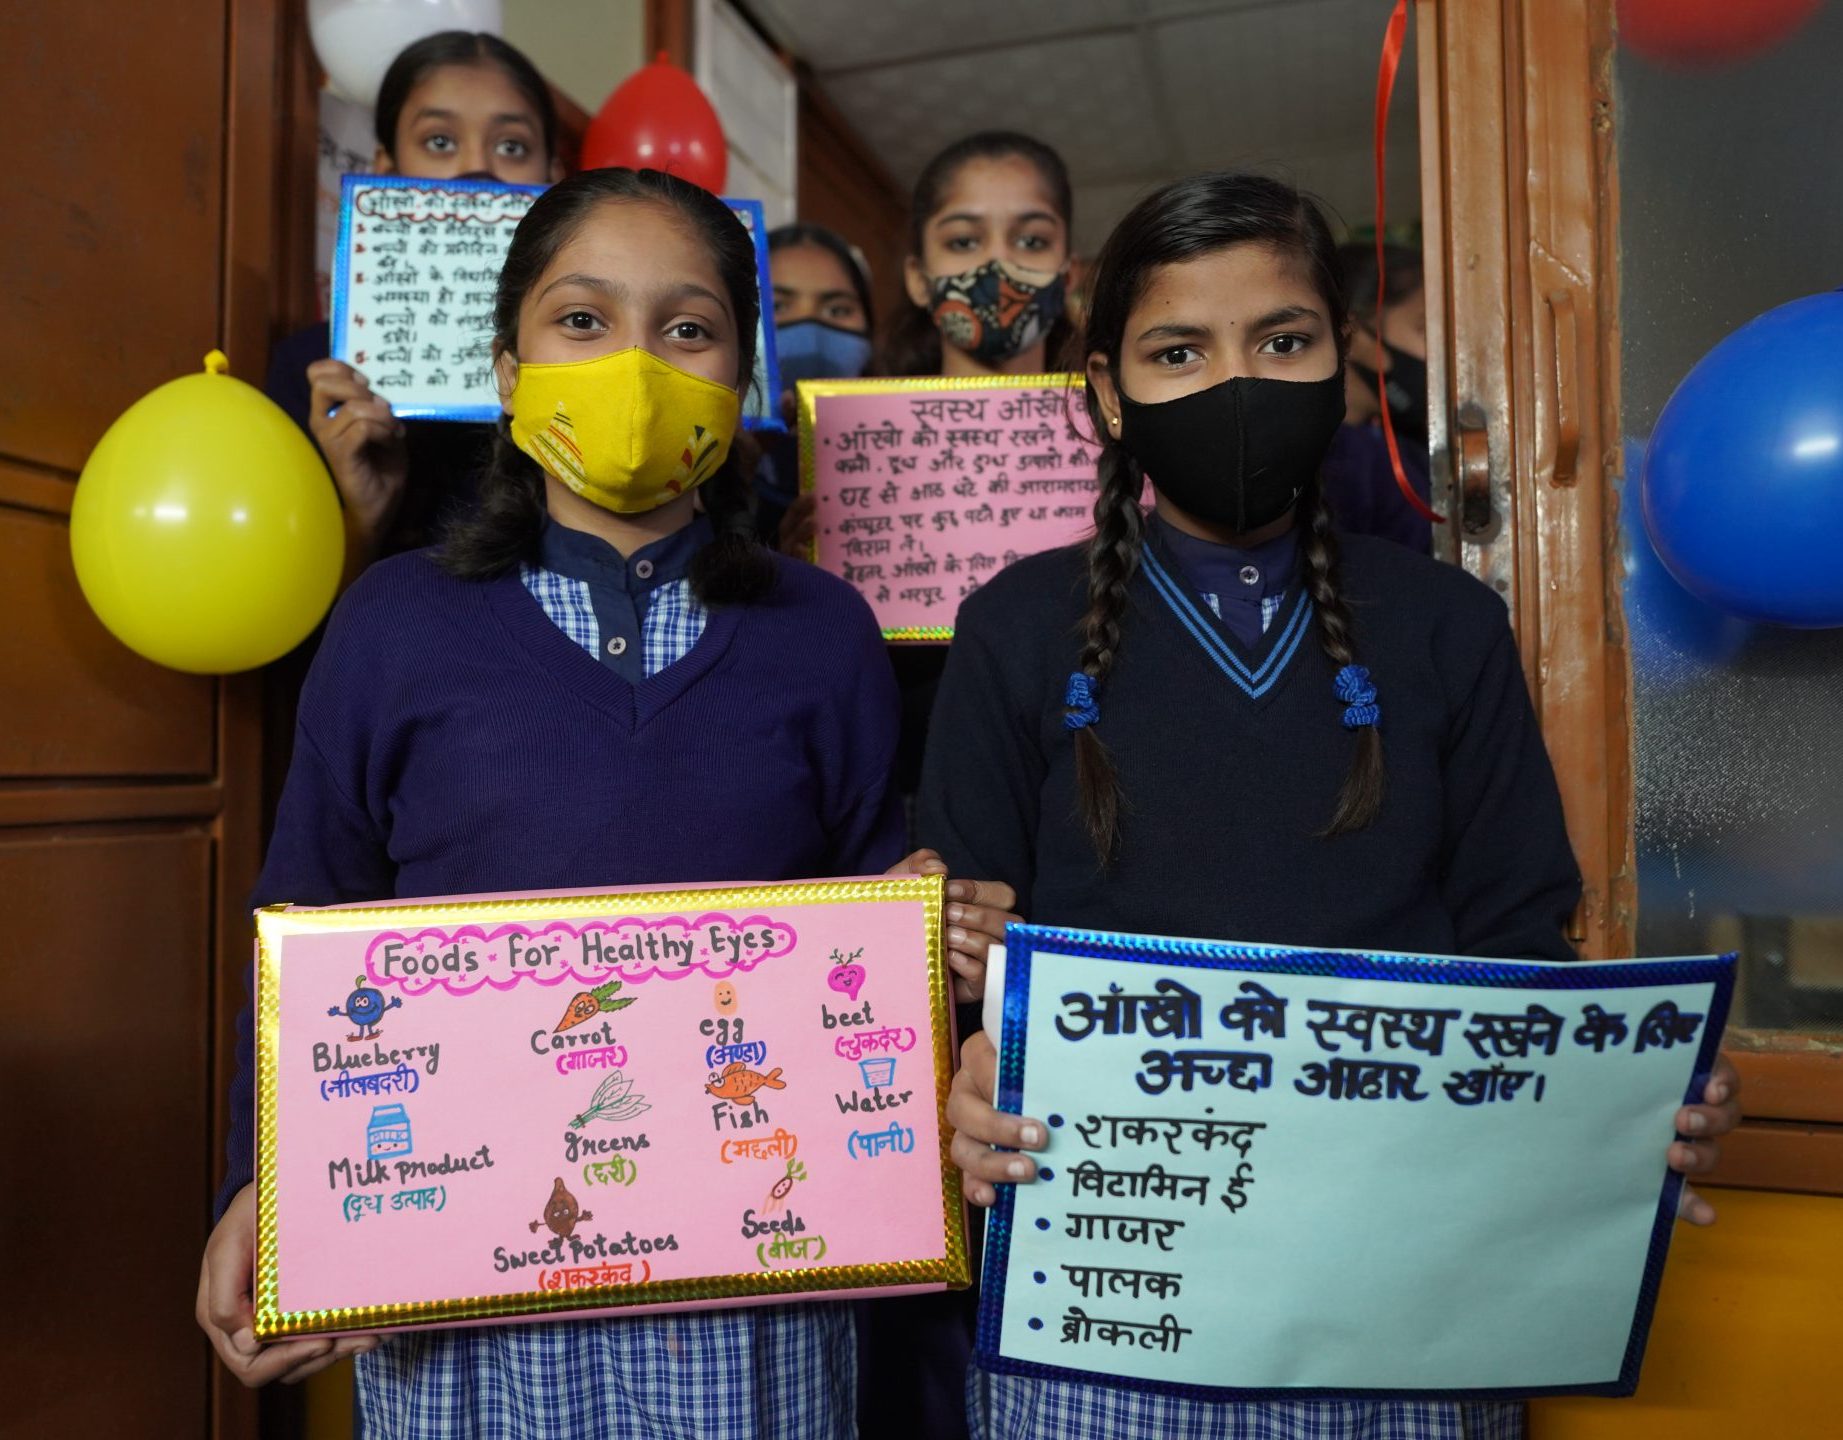 आँखो को स्वस्थ
बच्चो को
बच्चो को प्रतिदिन
आँखो के
समस्या हो
बच्चो को
बच्चो को
बच्चो को पूरी
स्वस्थ आँखो के
• आँखो को स्वस्थ रखने
कमी, दूध और दुग्ध उत्पादो की
• छह से आठ घंटे की आरामदाय
• कंप्यूटर पर कुछ पढते हुए या काम
विराम ले।
बेहतर आँखो के लिए
से भरपूर
Foods For Healthy Eyes
Blueberry
(नीलबदरी)
Carrot
(गाजर)
egg
(अण्डा)
beet
(चुकदंर)
MILK
Milk product
(दूध उत्पाद)
greens
(हरी)
Fish
(मछली)
Water
(पानी)
Sweet Potatoes
(शकरकंद)
Seeds
(बीज)
आँखो को स्वस्थ रखने के लिए
अच्छा आहार खाँए।
• शकरकंद
• विटामिन ई
• गाजर
• पालक
• ब्रोकली